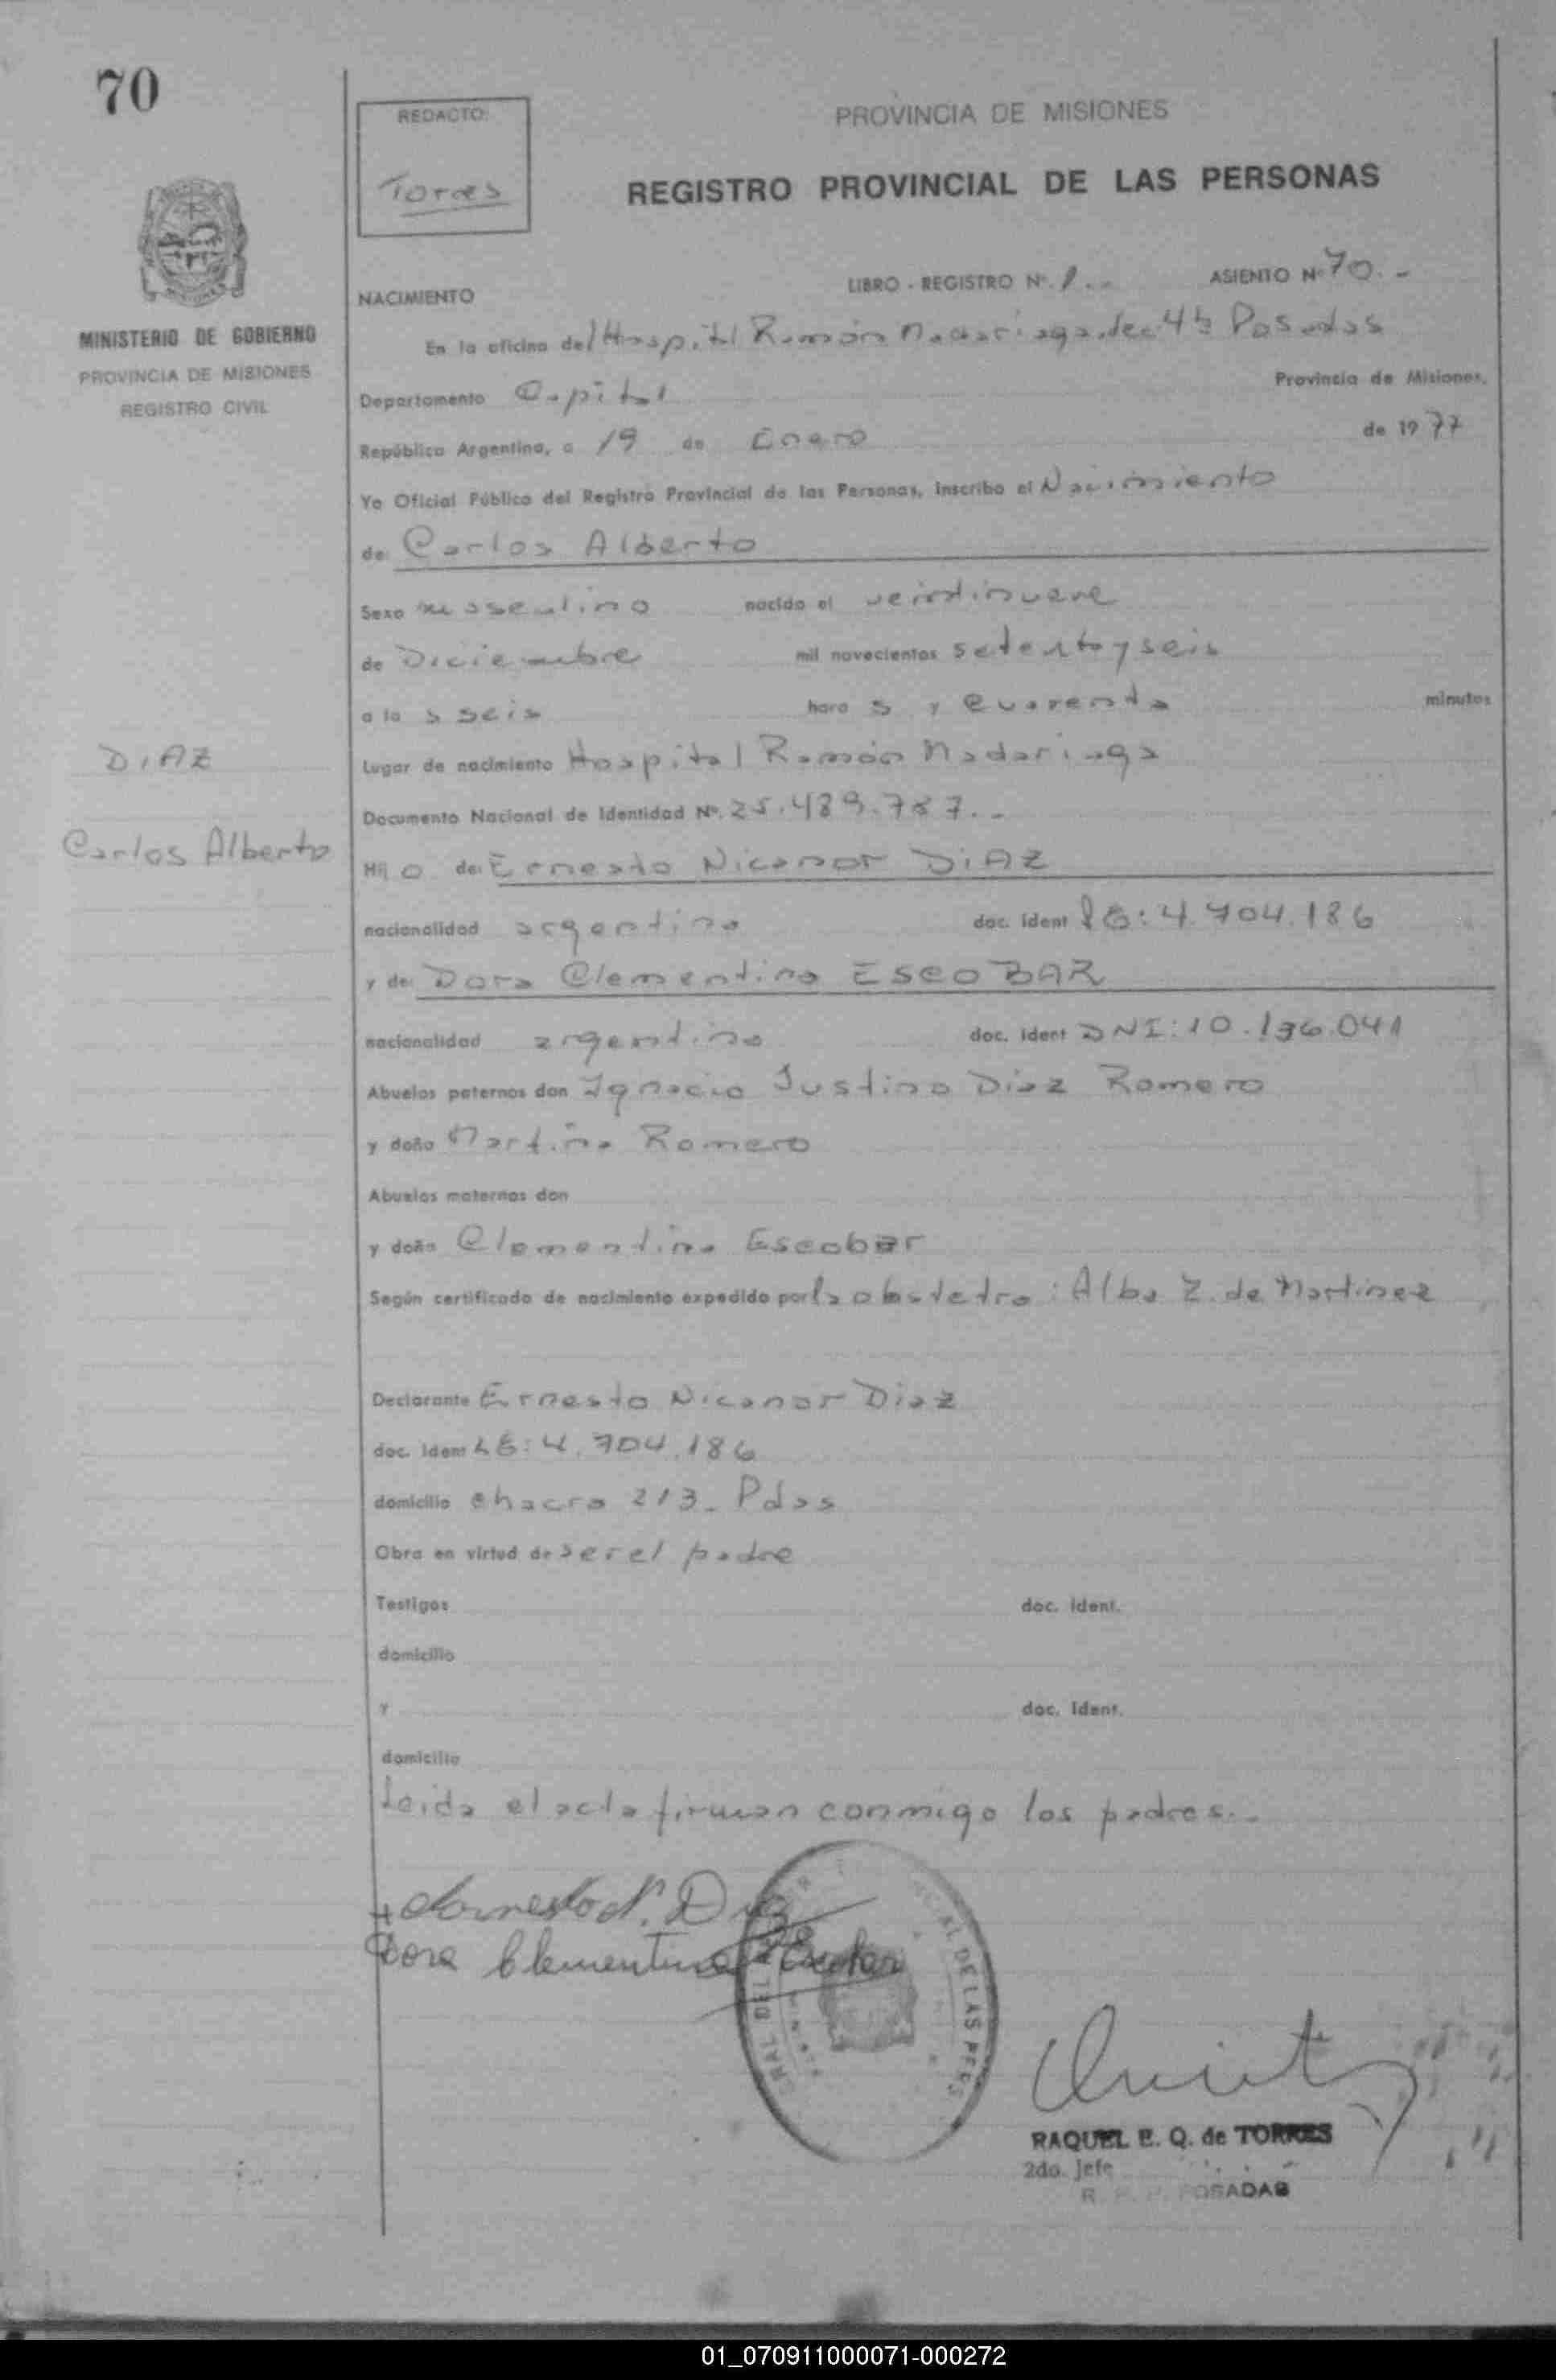 70
REDACTO:
Torres
PROVINCIA DE MISIONES
REGISTRO PROVINCIAL DE LAS PERSONAS
MINISTERIO DE GOBIERNO
PROVINCIA DE MISIONES
REGISTRO CIVIL
NACIMIENTO LIBRO - REGISTRO Nº. 1.- ASIENTO Nº 70.-
En la oficina del Hospital Ramón Madariaga, Posadas
Departamento Capital Provincia de Misiones,
República Argentina, a 19 de Enero de 1977
Yo Oficial Público del Registro Provincial de las Personas, inscribo el Nacimiento
de: Carlos Alberto
Sexo masculino nacido el veintinueve
de Diciembre mil novecientos setenta y seis
a las seis horas y cuarenta minutos
Lugar de nacimiento Hospital Ramón Madariaga
DIAZ
Carlos Alberto
Documento Nacional de Identidad Nº. 25.489.787.-
Hijo de: Ernesto Nicanor DIAZ
nacionalidad argentina doc. ident LE: 4.704.186
y de: Dora Clementina ESCOBAR
nacionalidad argentina doc. ident DNI: 10.136.041
Abuelos paternos don Ignacio Justino Diaz Romero
y doña Martina Romero
Abuelos maternos don
y doña Clementina Escobar
Según certificado de nacimiento expedido por la obstetra: Alba Z. de Martinez
Declarante Ernesto Nicanor Diaz
doc. ident LE: 4.704.186
domicilio chacra 213- Pdas
Obra en virtud de ser el padre
Testigos doc. ident.
domicilio
y doc. ident.
domicilio
Leida el acta firman conmigo los padres.-
Ernesto N. Diaz
Dora Clementina Escobar
DE LAS PERS
RAQUEL E. Q. de TORRES
2do. Jefe
POSADAS
01_070911000071-000272